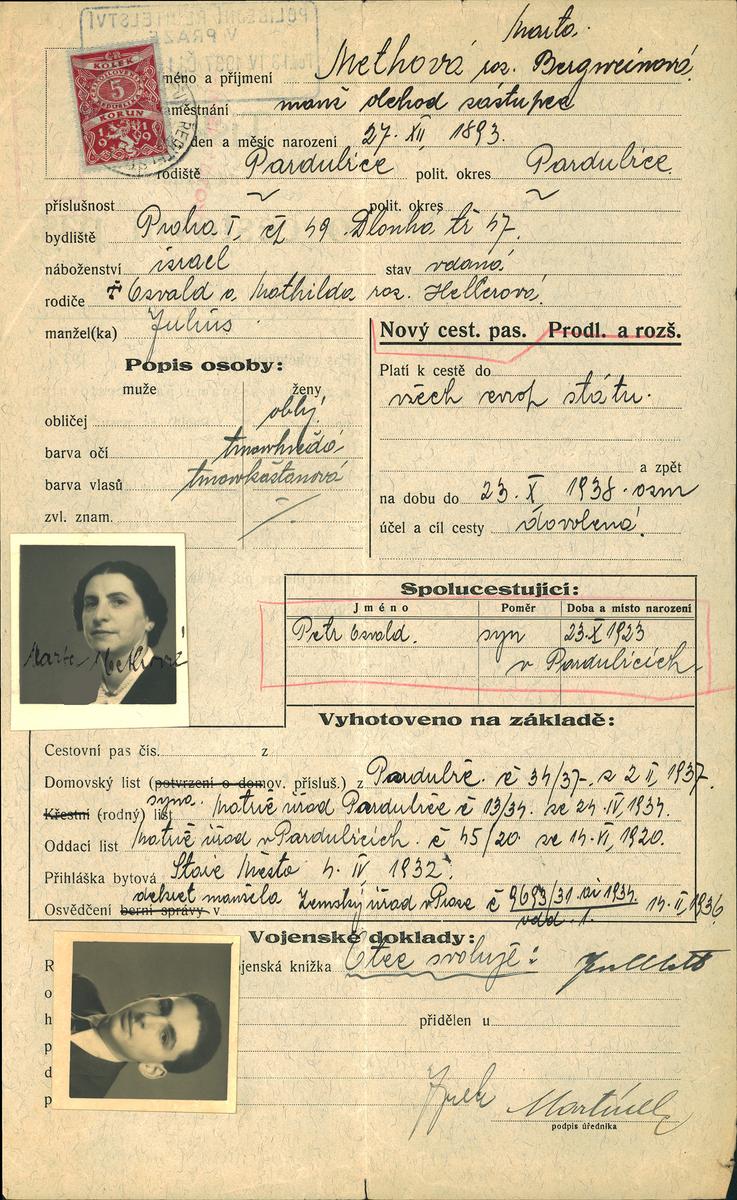 POLICEJNÍ ŘEDITELSTVÍ
V PRAZE
ČR
KOLEK
5
KORUN
1919
Marta
jméno a příjmení Methová roz. Bergweinová
zaměstnání manž důchod zástupce
den a měsíc narození 27. XII. 1893.
rodiště Pardubice polit. okres Pardubice
příslušnost ~ polit. okres ~
bydliště Praha I, čp 49 Dlouhá tř 47.
náboženství israel stav vdaná
rodiče † Osvald a Mathilda roz. Hellerová
manžel(ka) Julius
Nový cest. pas. Prodl. a rozš.
Popis osoby:
muže ženy
obličej oblý
barva očí tmavhnědá
barva vlasů tmavkaštanová
zvl. znam.
Platí k cestě do
všech evrop států.
a zpět
na dobu do 23. X 1938. osm
účel a cíl cesty dovolená
Marta Methová
Spolucestující:
Jméno Poměr Doba a místo narození
Petr Osvald. syn 23. X 1923
v Pardubicích
Vyhotoveno na základě:
Cestovní pas čís. z
Domovský list (potvrzení o domov. přísluš.) z Pardubice. č 34/37. z 2 II. 1937.
syna.
Křestní (rodný) list Matrič úřad Pardubice č 13/34. ze 24. IV. 1934.
Oddací list Matrič úřad v Pardubicích. č 45/20. ze 14. VI. 1920.
Přihláška bytová Staré Město 4. IV 1932.
Osvědčení berní správy v dekret manžela Zemský úřad v Praze č 9693/31 1934. 14. II. 1936
Vojenské doklady:
vojenská knížka Otec svoluje:
přidělen u
podpis úředníka